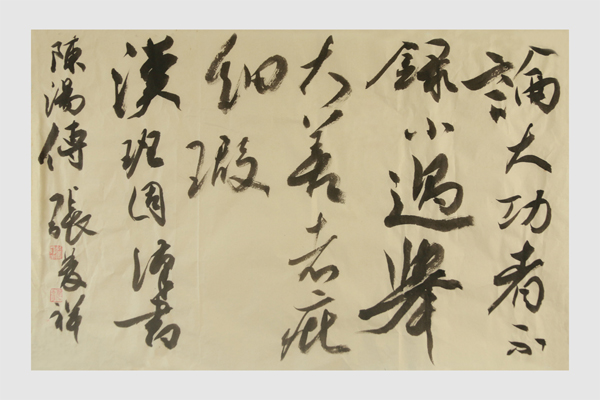 論大功者不
錄小過舉
大美者疵
細瑕
漢班固漢書
陳湯傳 張 祥